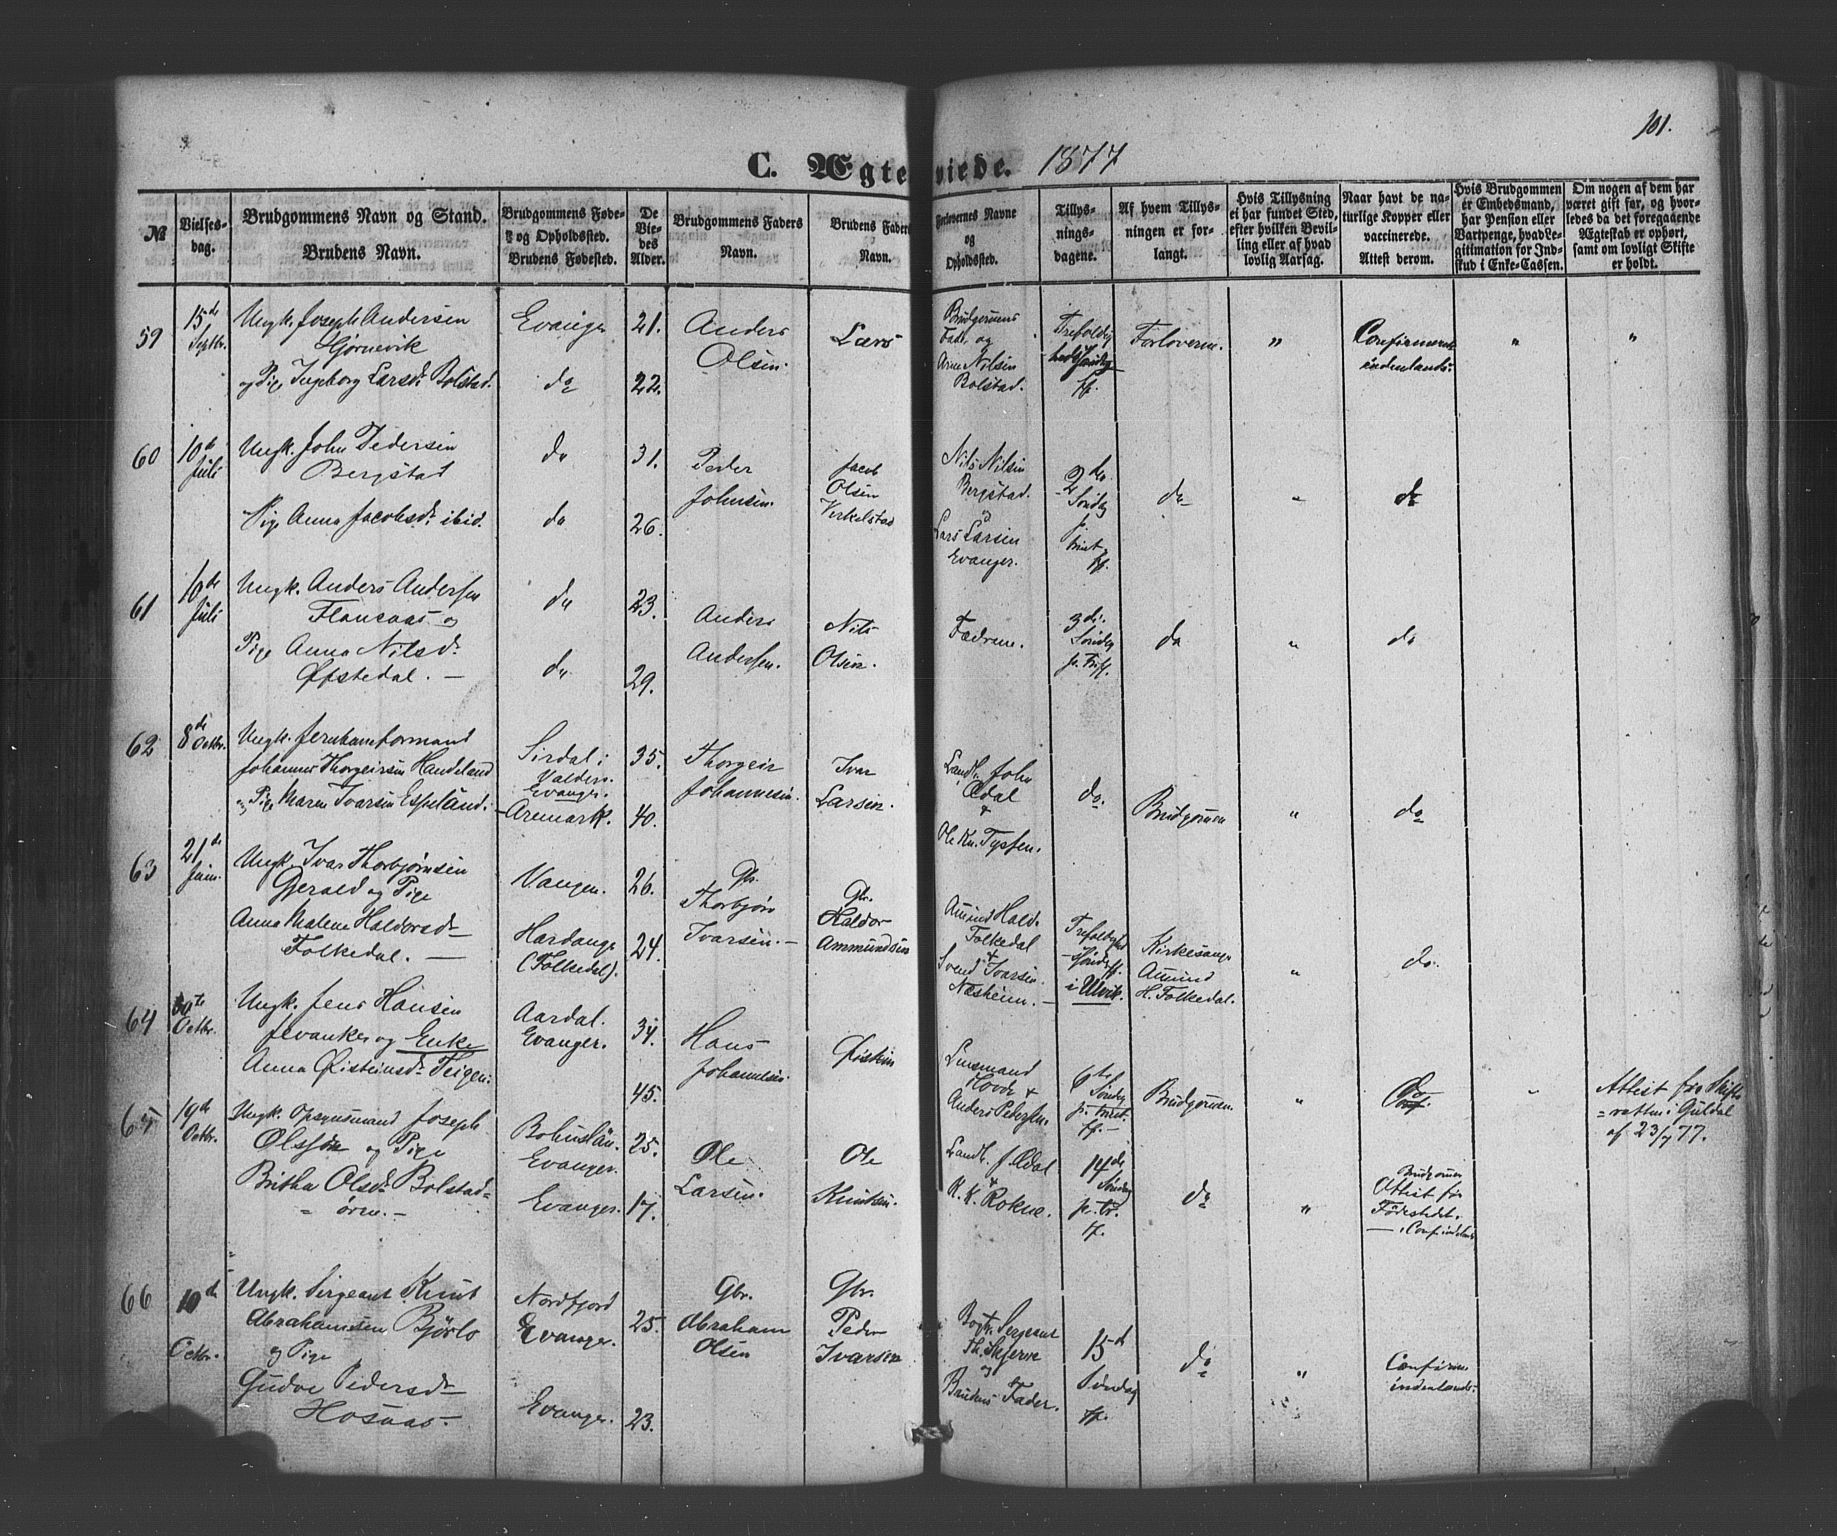 101.
C. Ægteviede. 1877
№
Vielses-
dag.
Brudgommens Navn og Stand.
Brudens Navn.
Brudgommens Føde-
og Opholdssted.
Brudens Fødested.
De
Vie-
des
Alder.
Brudgommens Faders
Navn.
Brudens Faders
Navn.
Forlovernes Navne
og
Opholdssted.
Tillys-
nings-
dagene.
Af hvem Tillys-
ningen er for-
langt.
Hvis Tillysning
ei har fundet Sted,
efter hvilken Bevil-
ling eller af hvad
lovlig Aarsag.
Naar havt de na-
turlige Kopper eller
vaccinerede.
Attest derom.
Hvis Brudgommen
er Embedsmand,
har Pension eller
Vartpenge, hvad Le-
gitimation for Ind-
skud i Enke-Cassen.
Om nogen af dem har
været gift før, og hvor-
ledes da det foregaaende
Ægteskab er ophørt,
samt om lovligt Skifte
er holdt.
59
15de
Septbr.
Ungk. Joseph Andersen
Hjørnevik
og Pige Ingeborg Larsd. Bolstad.
Evanger
do
21.
22.
Anders
Olsen.
Lars
Brudgomens
Fader, og
Arne Nilsen
Bolstad.
Trefoldig
heds Søndag
ff.
Forloverne.
"
Confirmerede
indenlands.
"
"
60
10de
Juli
Ungk. John Pedersen
Bergstad
Pige Anna Jacobsd. ibid.
do
do
31.
26.
Peder
Johnsen.
Jacob
Olsen
Virkelstad
Nils Nilsen
Bergstad.
&
Lars Larsen
Evanger.
2den
Søndag
p.
trinit.
ff.
do
"
do
61
10de
Juli
Ungk. Anders Andersen
Flancaas og
Pige Anna Nilsd.
Øfstedal. —
do
do
23.
29.
Anders
Andersen.
Nils
Olsen.
Fædrene.
3di.
Søndag
p. Tr. ff.
do
"
do
62
8de
Octbr.
Ungk. Jernbaneformand
Johannes Thorgeirsen Handeland
og Pige Maren Ivarsen Espeland.
Sirdal i
Valders.
Evanger.
Aremark.
35.
40.
Thorgeir
Johannesen.
Ivar
Larsen.
Landh. John
Ødal
&
Ole Kn. Tyssen.
do.
Brudgomen
"
do
63
21de
Juni.
Ungk. Ivar Thorbjørnsen
Gjerald og Pige
Anna Malene Haldorsd.
Folkedal. —
Vangen.
Hardanger
(Folkedal).
26.
24.
Gbr.
Thorbjørn
Ivarsen. —
Gbr.
Haldor
Ammundsen
Amund Hald.
Folkedal
&
Svend Ivarsen
Næsheim. —
Trefoldighed
Sønd. ff.
i Ulvik.
Kirkesanger
Amund
H. Folkedal.
"
do.
64
Octbr.
Ungk. Jens Hansen
Svanker og Enke
Anna Øisteinsd. Teigen.
Aardal.
Evanger.
34.
45.
Hans
Johannesen.
Øistein
Lensmand
Hovde &
Anders Pedersen.
6te
Søndag
p. trinit.
ff. —
Brudgomen.
"
do
"
Attest fra Skifte
=retten i Guldal
af 23/9 77.
65
19de
Octbr.
Ungk. Opsynsmand Joseph
Olssøn og Pige
Britha Olsd. Bolstad=
= øren. —
Bohuslän.
Evanger.
Evanger.
25.
17.
Ole
Larsen.
Ole
Knutsen.
Landh. J. Ødal
&
K. K. Rokne.
14de
Søndag
p. tr.
ff.
do
"
Brudgomen
Attest fra
Fødestedet.
— Conf. indenlands
66
10de
Octbr.
Ungk. Sergeant Knut
Abrahamsen Bjørlo
og Pige
Gudve Pedersd.
Hosaas.
Nordfjord
Evanger.
Evanger.
25.
23.
Gbr.
Abraham
Olsen
Gbr.
Peder
Ivarsen
Sergeant
Th. Skjerve
og
Brudens Fader.
15de
Søndag
ff.
do
"
Confirm.
indenlands.